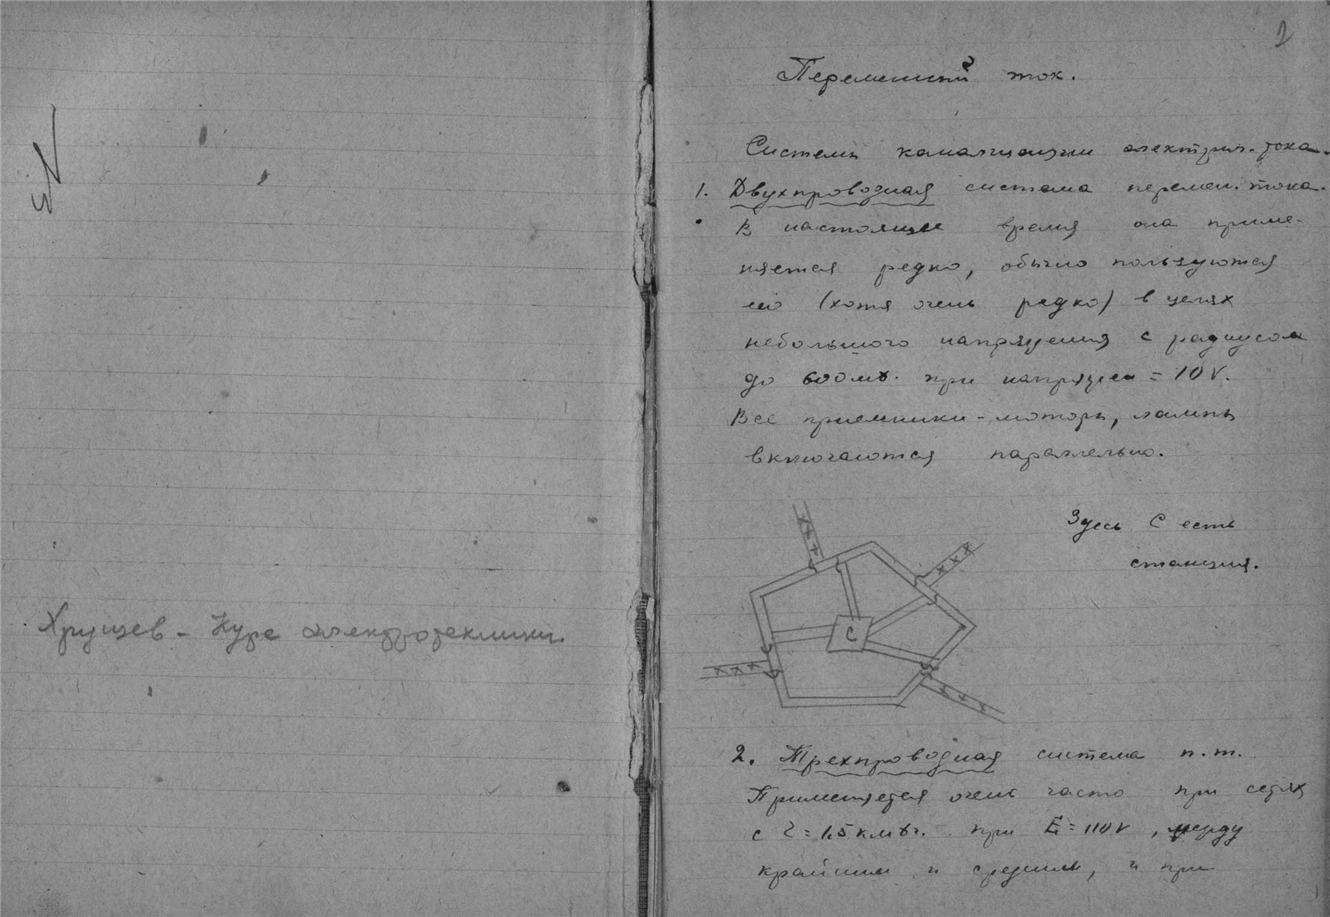 Хрущев - Курс электротехники.
2
Переменный ток.
Системы канализации электрич. тока.
1. Двухпроводная система перемен. тока.
В настоящее время она приме-
няется редко, обычно пользуются
ею (хотя очень редко) в целях
небольшого напряжения с радиусом
до 600 мт. при напряжен = 110 V.
Все приемники - моторы, лампы
включаются параллельно.
Здесь С есть
станция.
С
2. Трехпроводная система п. т.
Применяется очень часто при сетях
с r = 1,5 км при E = 110 V, между
крайним и средним, и при